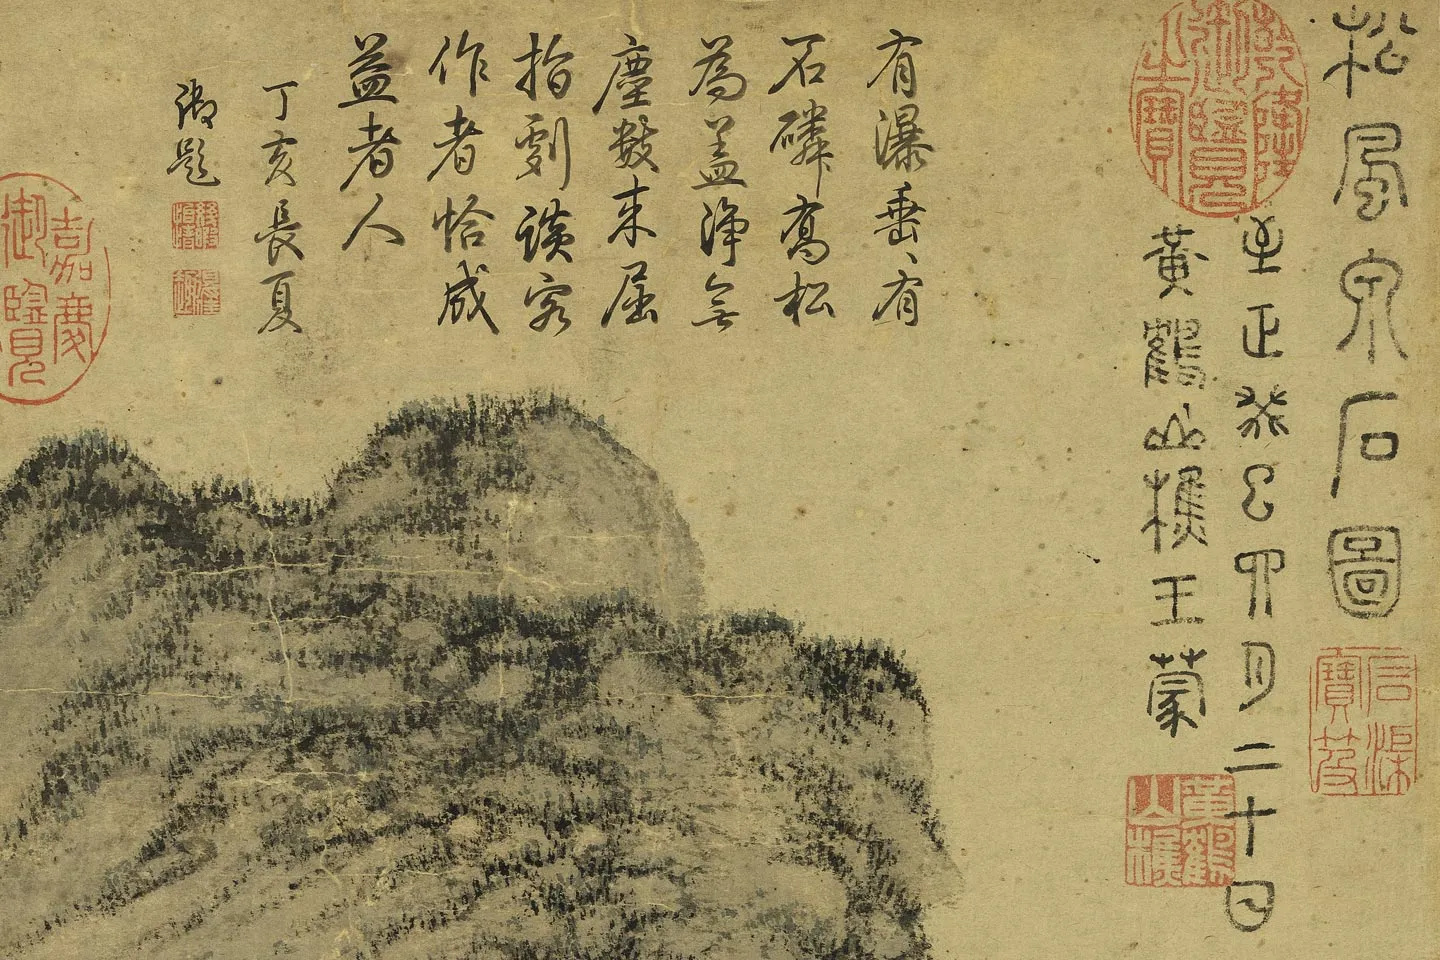 松風泉石圖
至正癸巳四月二十日
黃鶴山樵王蒙
乾隆御覽之寶
石渠寶笈
黃鶴山樵
有瀑垂〻有
石磷高松
為蓋淨無
塵數來屈
指劇談客
作者恰成
益者人
丁亥長夏
御題
嘉慶御覽